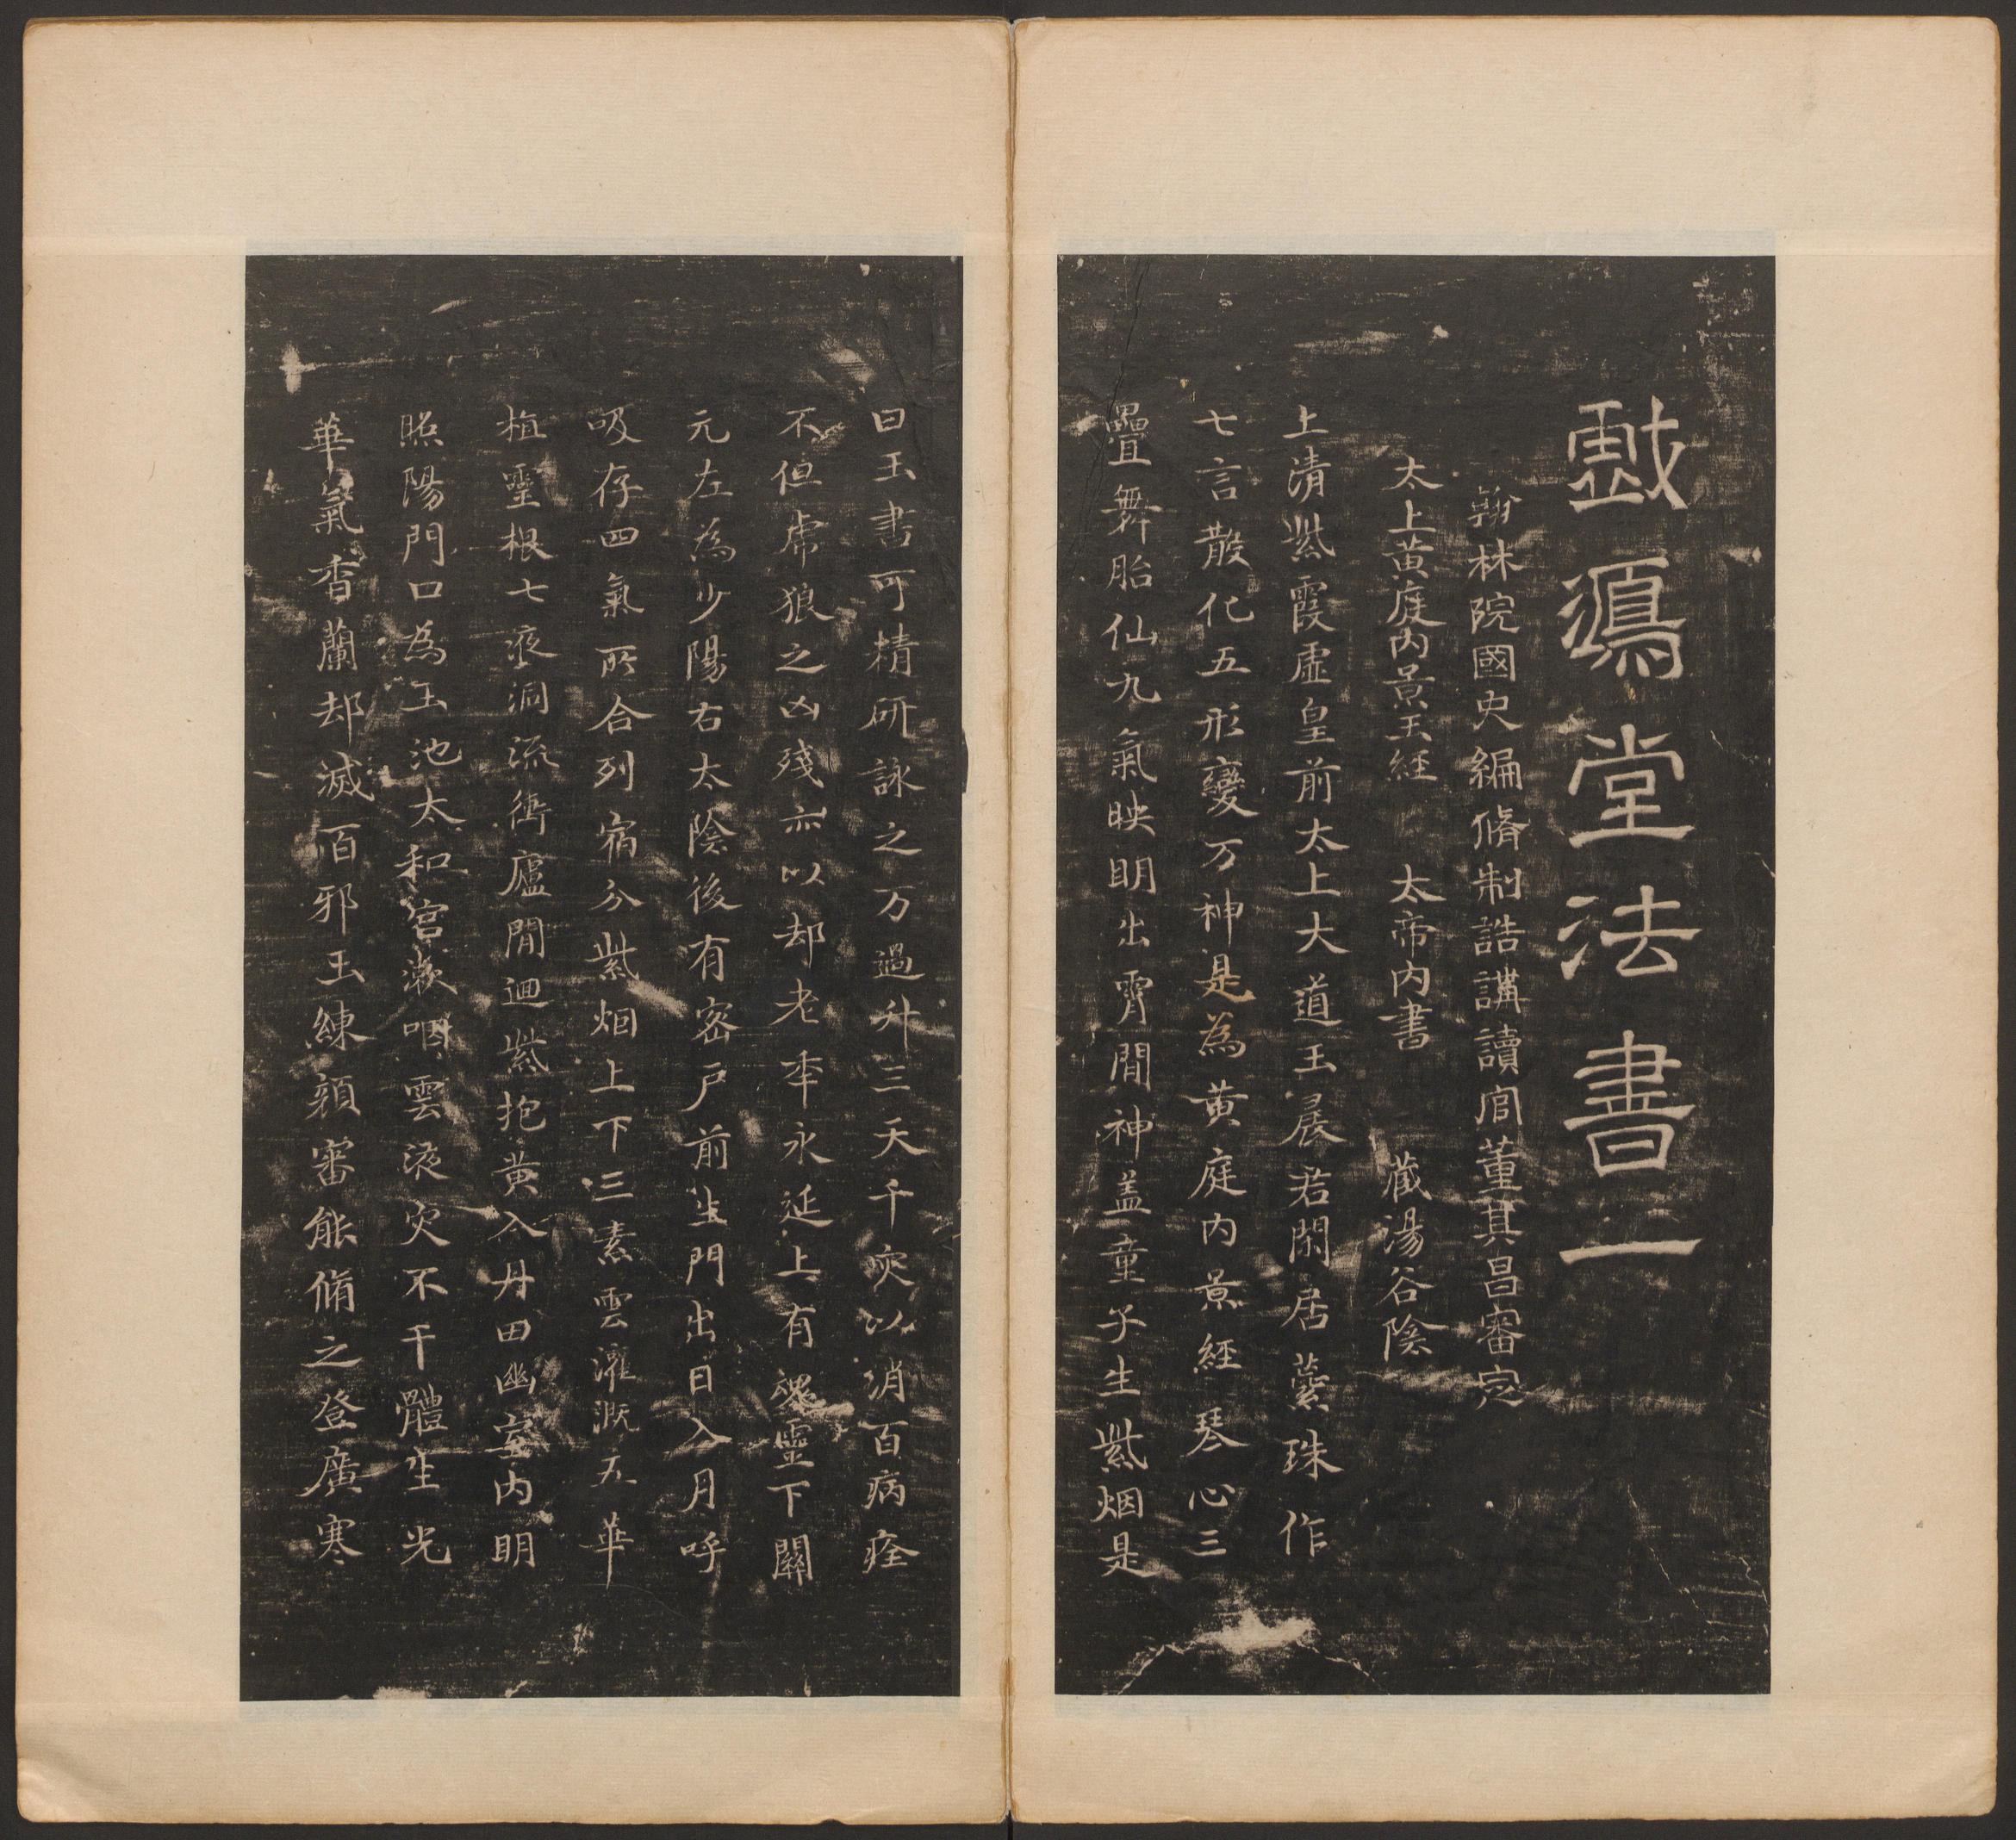 戲鴻堂法書一
翰林院國史編脩制誥講讀官董其昌審定
太上黃庭內景玉經 太帝內書 藏湯谷陰
上清紫霞虛皇前太上大道玉晨君閑居蘂珠作
七言散化五形變万神是為黃庭內景經琴心三
疊舞胎仙九氣映明出霄間神盖童子生紫烟是
曰玉書可精研詠之万過升三天千灾以消百病痊
不但虎狼之凶殘亦以却老年永延上有魂靈下關
元左為少陽右太陰後有密戶前生門出日入月呼
吸存四氣所合列宿分紫烟上下三素雲灌溉五華
植靈根七液洞流衝廬間迴紫抱黃入丹田幽室內明
照陽門口為玉池太和宮漱咽雲液灾不干體生光
華氣香蘭却滅百邪玉練顏審能脩之登廣寒